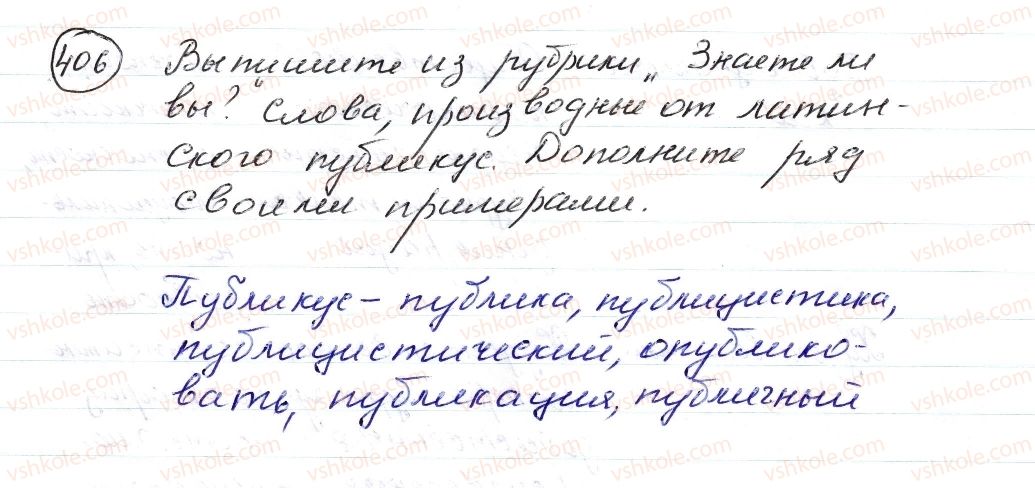 406 Выпишите из рубрики „Знаете ли
вы?“ слова, производные от латин-
ского публикус. Дополните ряд
своими примерами.
Публикус – публика, публицистика,
публицистический, опублико-
вать, публикация, публичный